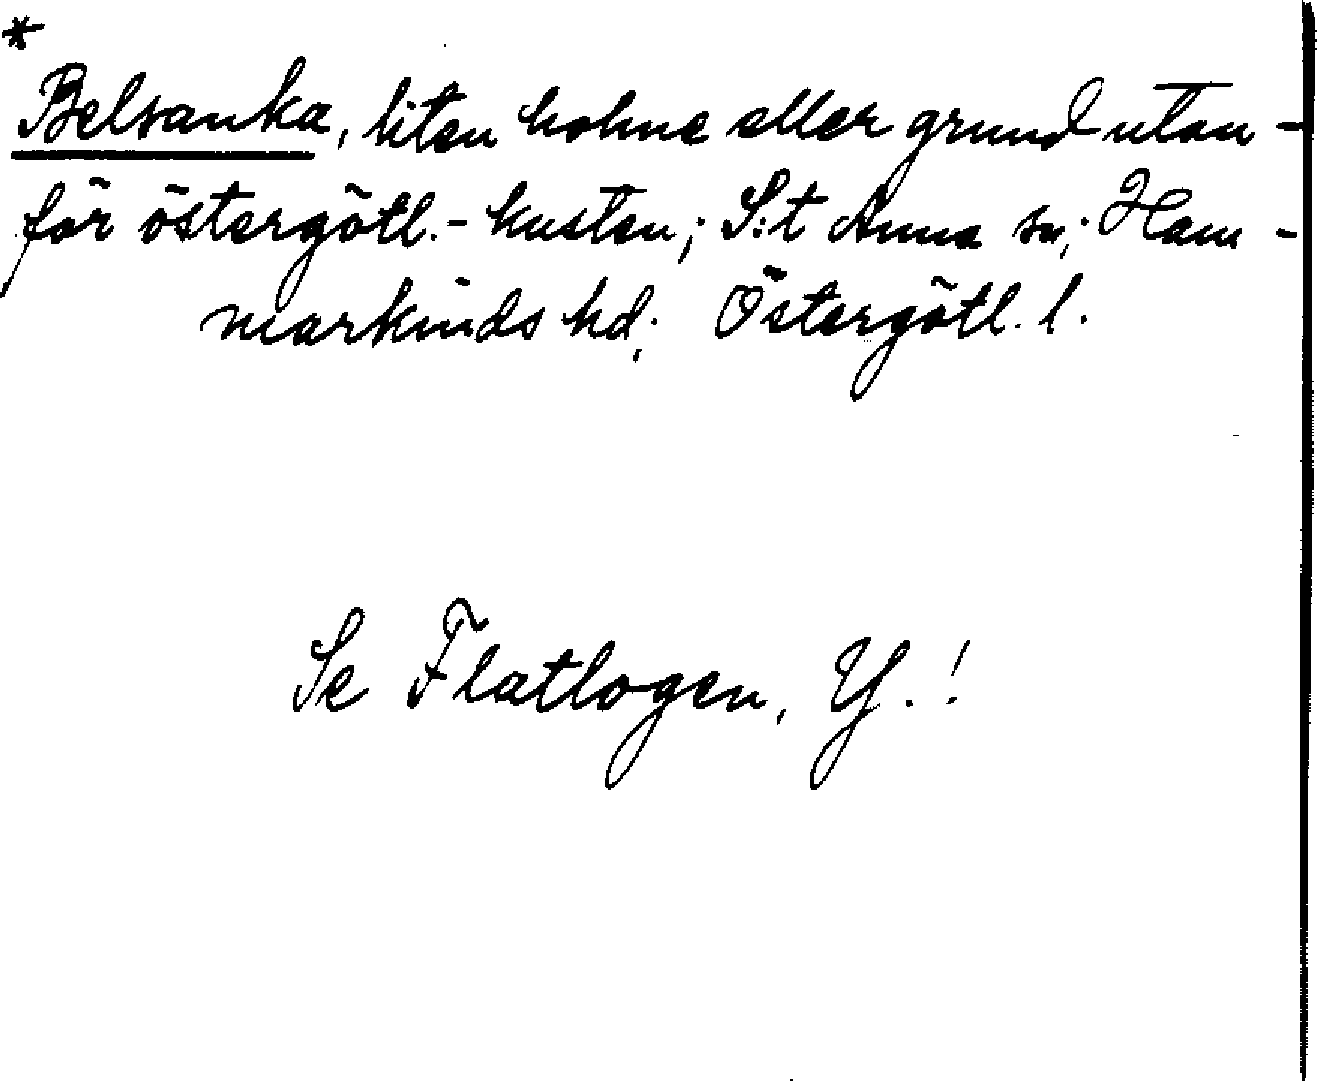 *
Belsanka, liten holme eller grund utan-
för östergötl.-kusten; S:t Anna sn; Ham-
markinds hd; Östergötl. l.
Se Flatlogen, Y.!